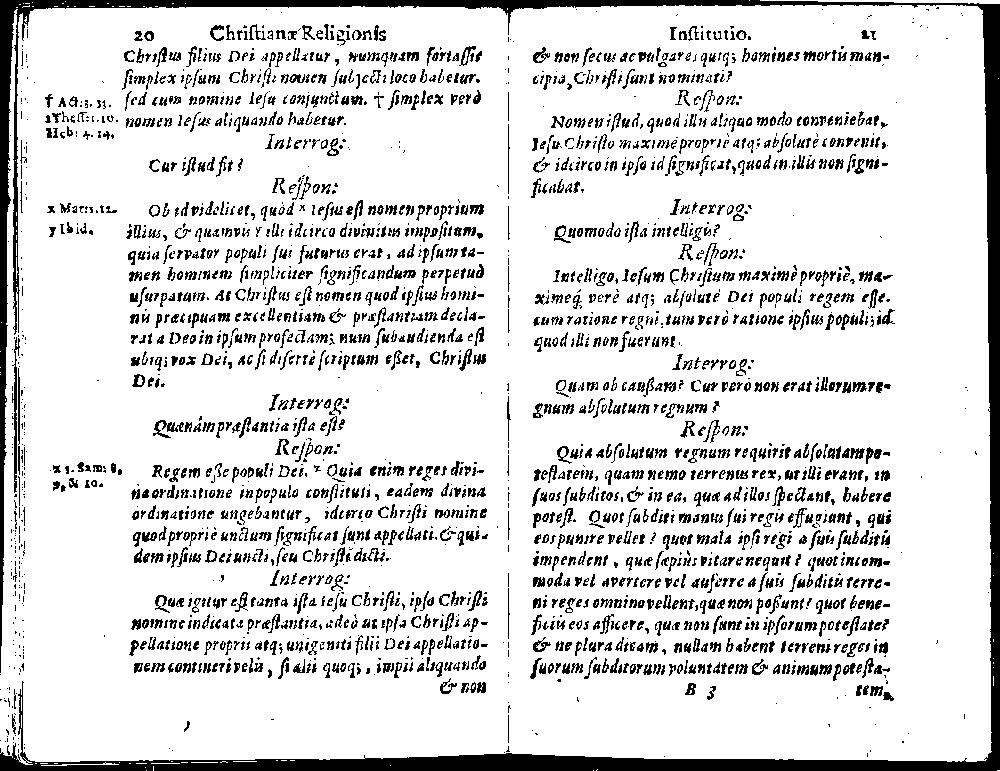 20 Chriſtianæ Religionis
Chriſtus filius Dei appellatur, numquam fortaſſis
ſimplex ipſum Chriſti nomen ſubjecti loco habetur.
ſed cum nomine Ieſu conjunctum. † ſimplex verò
nomen Ieſus aliquando habetur.
† Act: 3. 13.
1 Theſſ: 1. 10.
Heb: 4. 14.
Interrog:
Cur iſtud fit?
Reſpon:
x Mat: 1. 12.
y Ibid.
Ob id videlicet, quòd x Ieſus eſt nomen proprium
illius, & quamvis y illi idcirco divinitus impoſitum,
quia ſervator populi ſui futurus erat, ad ipſum ta-
men hominem ſimpliciter ſignificandum perpetuò
uſurpatum. At Chriſtus eſt nomen quod ipſius homi-
nis præcipuam excellentiam & præſtantiam decla-
rat a Deo in ipſum profectam; num ſubaudienda eſt
ubiq; vox Dei, ac ſi diſertè ſcriptum eßet, Chriſtus
Dei.
Interrog:
Quænam præſtantia iſta eſt?
Reſpon:
z 1. Sam: 8,
9, & 10.
Regem eße populi Dei. z Quia enim reges divi-
na ordinatione in populo conſtituti, eadem divina
ordinatione ungebantur, idcirco Chriſti nomine
quod propriè unctum ſignificat ſunt appellati. & qui-
dem ipſius Dei uncti, ſeu Chriſti dicti.
Interrog:
Quæ igitur eſt tanta iſta Ieſu Chriſti, ipſo Chriſti
nomine indicata præſtantia, adeò ut ipſa Chriſti ap-
pellatione propriè atq; unigeniti filii Dei appellatio-
nem contineri velis, ſi alii quoq;, impii aliquando
& non
Inſtitutio. 21
& non ſecus ac vulgares quiq; homines mortis man-
cipia, Chriſti ſunt nominati?
Reſpon:
Nomen iſtud, quod illis aliquo modo conveniebat,
Ieſu Chriſto maximè propriè atq; abſolutè convenit,
& idcirco in ipſo id ſignificat, quod in illis non ſigni-
ficabat.
Interrog:
Quomodo iſta intelligis?
Reſpon:
Intelligo, Ieſum Chriſtum maximè propriè, ma-
ximeq́ verè atq; abſolutè Dei populi regem eſſe.
tum ratione regni, tum verò ratione ipſius populi; id
quod illi non fuerunt.
Interrog:
Quam ob cauſſam? Cur verò non erat illorum re-
gnum abſolutum regnum?
Reſpon:
Quia abſolutum regnum requirit abſolutam po-
teſtatem, quam nemo terrenus rex, ut illi erant, in
ſuos ſubditos, & in ea, quæ ad illos ſpectant, habere
poteſt. Quot ſubditi manus ſui regis effugiunt, qui
eos punire vellet? quot mala ipſi regi a ſuis ſubditis
impendent, quæ ſæpiùs vitare nequit? quot incom-
moda vel avertere vel auferre a ſuis ſubditis terre-
ni reges omnino vellent, quæ non poſſunt? quot bene-
ficiis eos afficere, quæ non ſunt in ipſorum poteſtate?
& ne plura dicam, nullam habent terreni reges in
ſuorum ſubditorum voluntatem & animum poteſta-
B 3 tem,